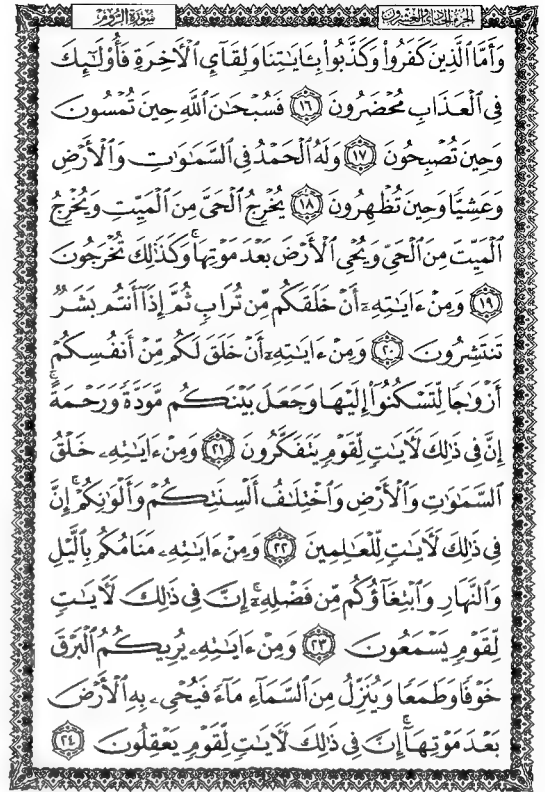 سُورَةُ الرُّومِ
الجزء الحادي والعشرون
وَأَمَّا ٱلَّذِينَ كَفَرُوا۟ وَكَذَّبُوا۟ بِـَٔايَـٰتِنَا وَلِقَآئِ ٱلْـَٔاخِرَةِ فَأُو۟لَـٰٓئِكَ
فِى ٱلْعَذَابِ مُحْضَرُونَ ﴿١٦﴾ فَسُبْحَـٰنَ ٱللَّهِ حِينَ تُمْسُونَ
وَحِينَ تُصْبِحُونَ ﴿١٧﴾ وَلَهُ ٱلْحَمْدُ فِى ٱلسَّمَـٰوَٰتِ وَٱلْأَرْضِ
وَعَشِيًّا وَحِينَ تُظْهِرُونَ ﴿١٨﴾ يُخْرِجُ ٱلْحَىَّ مِنَ ٱلْمَيِّتِ وَيُخْرِجُ
ٱلْمَيِّتَ مِنَ ٱلْحَىِّ وَيُحْىِ ٱلْأَرْضَ بَعْدَ مَوْتِهَا ۚ وَكَذَٰلِكَ تُخْرَجُونَ
﴿١٩﴾ وَمِنْ ءَايَـٰتِهِۦٓ أَنْ خَلَقَكُم مِّن تُرَابٍ ثُمَّ إِذَآ أَنتُم بَشَرٌ
تَنتَشِرُونَ ﴿٢٠﴾ وَمِنْ ءَايَـٰتِهِۦٓ أَنْ خَلَقَ لَكُم مِّنْ أَنفُسِكُمْ
أَزْوَٰجًا لِّتَسْكُنُوٓا۟ إِلَيْهَا وَجَعَلَ بَيْنَكُم مَّوَدَّةً وَرَحْمَةً ۚ
إِنَّ فِى ذَٰلِكَ لَـَٔايَـٰتٍ لِّقَوْمٍ يَتَفَكَّرُونَ ﴿٢١﴾ وَمِنْ ءَايَـٰتِهِۦ خَلْقُ
ٱلسَّمَـٰوَٰتِ وَٱلْأَرْضِ وَٱخْتِلَـٰفُ أَلْسِنَتِكُمْ وَأَلْوَٰنِكُمْ ۚ إِنَّ
فِى ذَٰلِكَ لَـَٔايَـٰتٍ لِّلْعَـٰلِمِينَ ﴿٢٢﴾ وَمِنْ ءَايَـٰتِهِۦ مَنَامُكُم بِٱلَّيْلِ
وَٱلنَّهَارِ وَٱبْتِغَآؤُكُم مِّن فَضْلِهِۦٓ ۚ إِنَّ فِى ذَٰلِكَ لَـَٔايَـٰتٍ
لِّقَوْمٍ يَسْمَعُونَ ﴿٢٣﴾ وَمِنْ ءَايَـٰتِهِۦ يُرِيكُمُ ٱلْبَرْقَ
خَوْفًا وَطَمَعًا وَيُنَزِّلُ مِنَ ٱلسَّمَآءِ مَآءً فَيُحْىِۦ بِهِ ٱلْأَرْضَ
بَعْدَ مَوْتِهَآ ۚ إِنَّ فِى ذَٰلِكَ لَـَٔايَـٰتٍ لِّقَوْمٍ يَعْقِلُونَ ﴿٢٤﴾